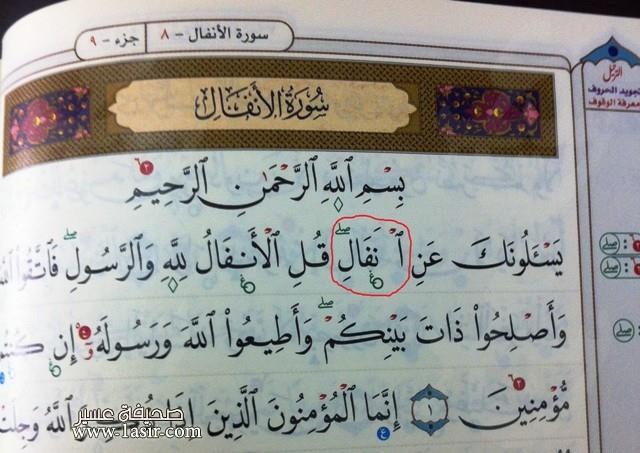 سورة الأنفال - ٨
جزء - ٩
الترتيل
تجويد الحروف
معرفة الوقوف
سُورَةُ الأَنفَالِ
بِسْمِ ٱللَّهِ ٱلرَّحْمَٰنِ ٱلرَّحِيمِ
يَسْـَٔلُونَكَ عَنِ ٱ نفَالِ قُلِ ٱلْأَنفَالُ لِلَّهِ وَٱلرَّسُولِ فَٱتَّقُوا۟ ٱللَّ
صلے
صلے
وَأَصْلِحُوا۟ ذَاتَ بَيْنِكُمْ وَأَطِيعُوا۟ ٱللَّهَ وَرَسُولَهُۥٓ إِن كُنتُم
صلے
مُّؤْمِنِينَ ١ إِنَّمَا ٱلْمُؤْمِنُونَ ٱلَّذِينَ إِذَا ذُكِرَ ٱللَّهُ وَجِلَتْ
صحيفة عسير
www.1asir.com